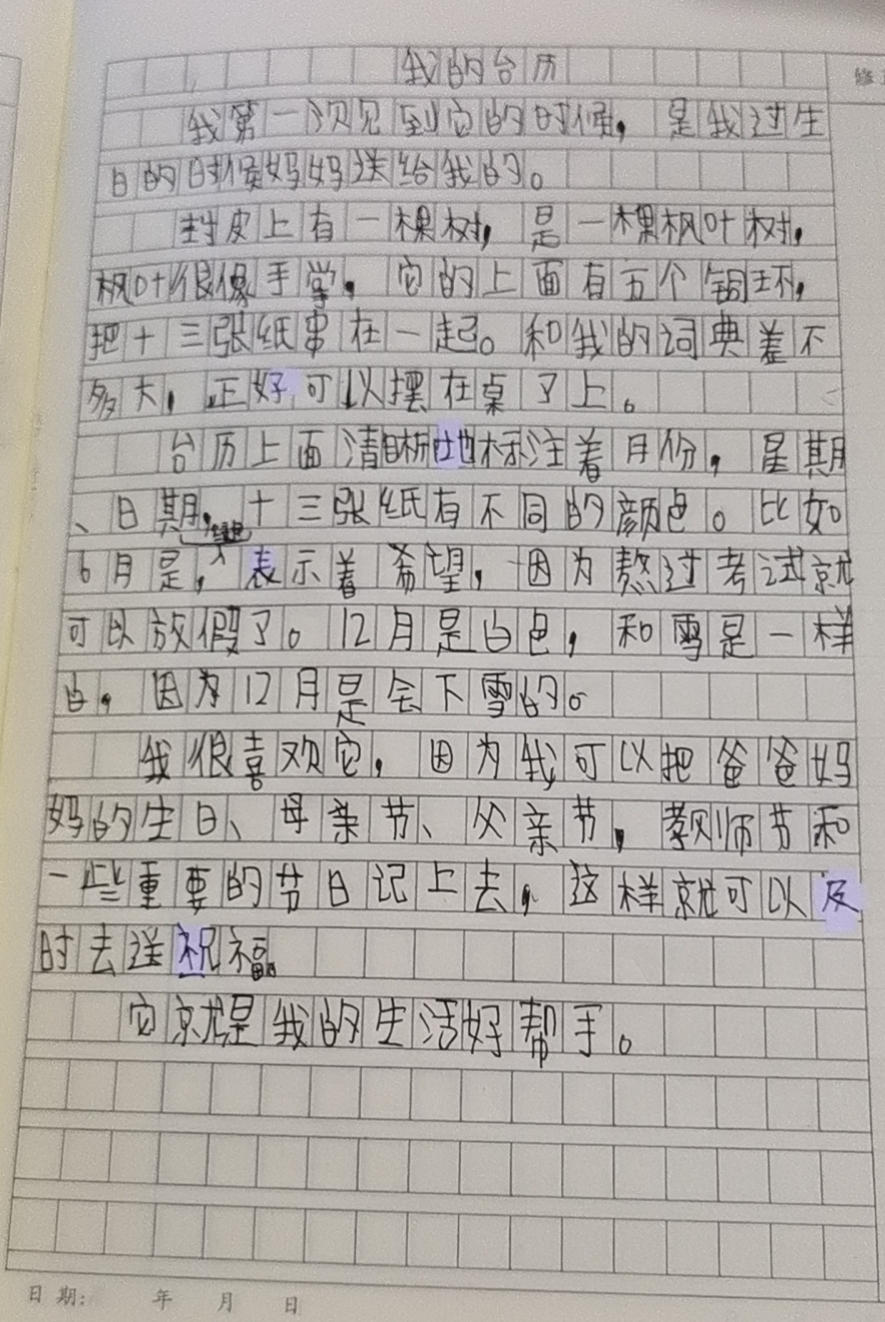 我的台历
修
我第一次见到它的时候，是我过生
日的时候妈妈送给我的。
封皮上有一棵树，是一棵枫叶树，
枫叶很像手掌。它的上面有五个铜环，
把十三张纸串在一起。和我的词典差不
多大，正好可以摆在桌子上。
台历上面清晰地标注着月份，星期
、日期，十三张纸有不同的颜色。比如
6月是绿色，表示着希望，因为熬过考试就
可以放假了。12月是白色，和雪是一样
白，因为12月是会下雪的。
我很喜欢它，因为我可以把爸爸妈
妈的生日、母亲节、父亲节，教师节和
一些重要的节日记上去，这样就可以及
时去送祝福。
它就是我的生活好帮手。
日期: 年 月 日